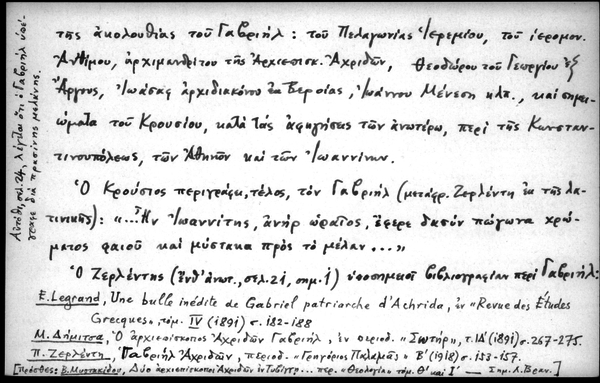 τῆς ἀκολουθίας τοῦ Γαβριήλ: τοῦ Πελαγωνίας Ἱερεμίου, τοῦ ἱερομον.
Ἀνθίμου, ἀρχιμανδρίτου τῆς Ἀρχιεπισκ. Ἀχριδῶν, Θεοδώρου τοῦ Γεωργίου ἐξ
Ἄργους, Ἰωάσαφ ἀρχιδιακόνου ἐκ Βεροίας, Ἰωάννου Μένεση κλπ., καὶ σημει-
ώματα τοῦ Κρουσίου, κατὰ τὰς ἀφηγήσεις τῶν ἀνωτέρω, περὶ τῆς Κωνσταν-
τινουπόλεως, τῶν Ἀθηνῶν καὶ τῶν Ἰωαννίνων.
Ὁ Κρούσιος περιγράφει, τέλος, τὸν Γαβριήλ (μετάφρ. Ζερλέντη ἐκ τῆς λα-
τινικῆς): «...Ἦν Ἰωαννίτης, ἀνὴρ ὡραῖος, ἔφερε δασὺν πώγωνα χρώ-
ματος φαιοῦ καὶ μύστακα πρὸς τὸ μέλαν...»
Ὁ Ζερλέντης (ἔνθ' ἀνωτ., σελ. 21, σημ. 1) ὑποσημειοῖ βιβλιογραφίαν περὶ Γαβριήλ:
E. Legrand, Une bulle inédite de Gabriel patriarche d'Achrida, ἐν «Revue des Études
Grecques», τόμ. IV (1891) σ. 182-188
Μ. Δήμιτσα, Ὁ ἀρχιεπίσκοπος Ἀχριδῶν Γαβριήλ, ἐν περιοδ. «Σωτήρ», τ. ΙΔ' (1891) σ. 267-275.
Π. Ζερλέντη, Γαβριὴλ Ἀχριδῶν, περιοδ. «Γρηγόριος Παλαμᾶς» Β' (1918) σ. 153-157.
[πρόσθες: Β. Μυστακίδου, Δύο ἀρχιεπίσκοποι Ἀχριδῶν ἐν Τυβίγγῃ... περ. «Θεολογία» τόμ. Θ' καὶ Ι' — Σημ. Λ. Βραν.]
Αὐτόθι, σελ. 24, λέγεται ὅτι ὁ Γαβριὴλ ὑπέ-
γραφε διὰ πρασίνης μελάνης.